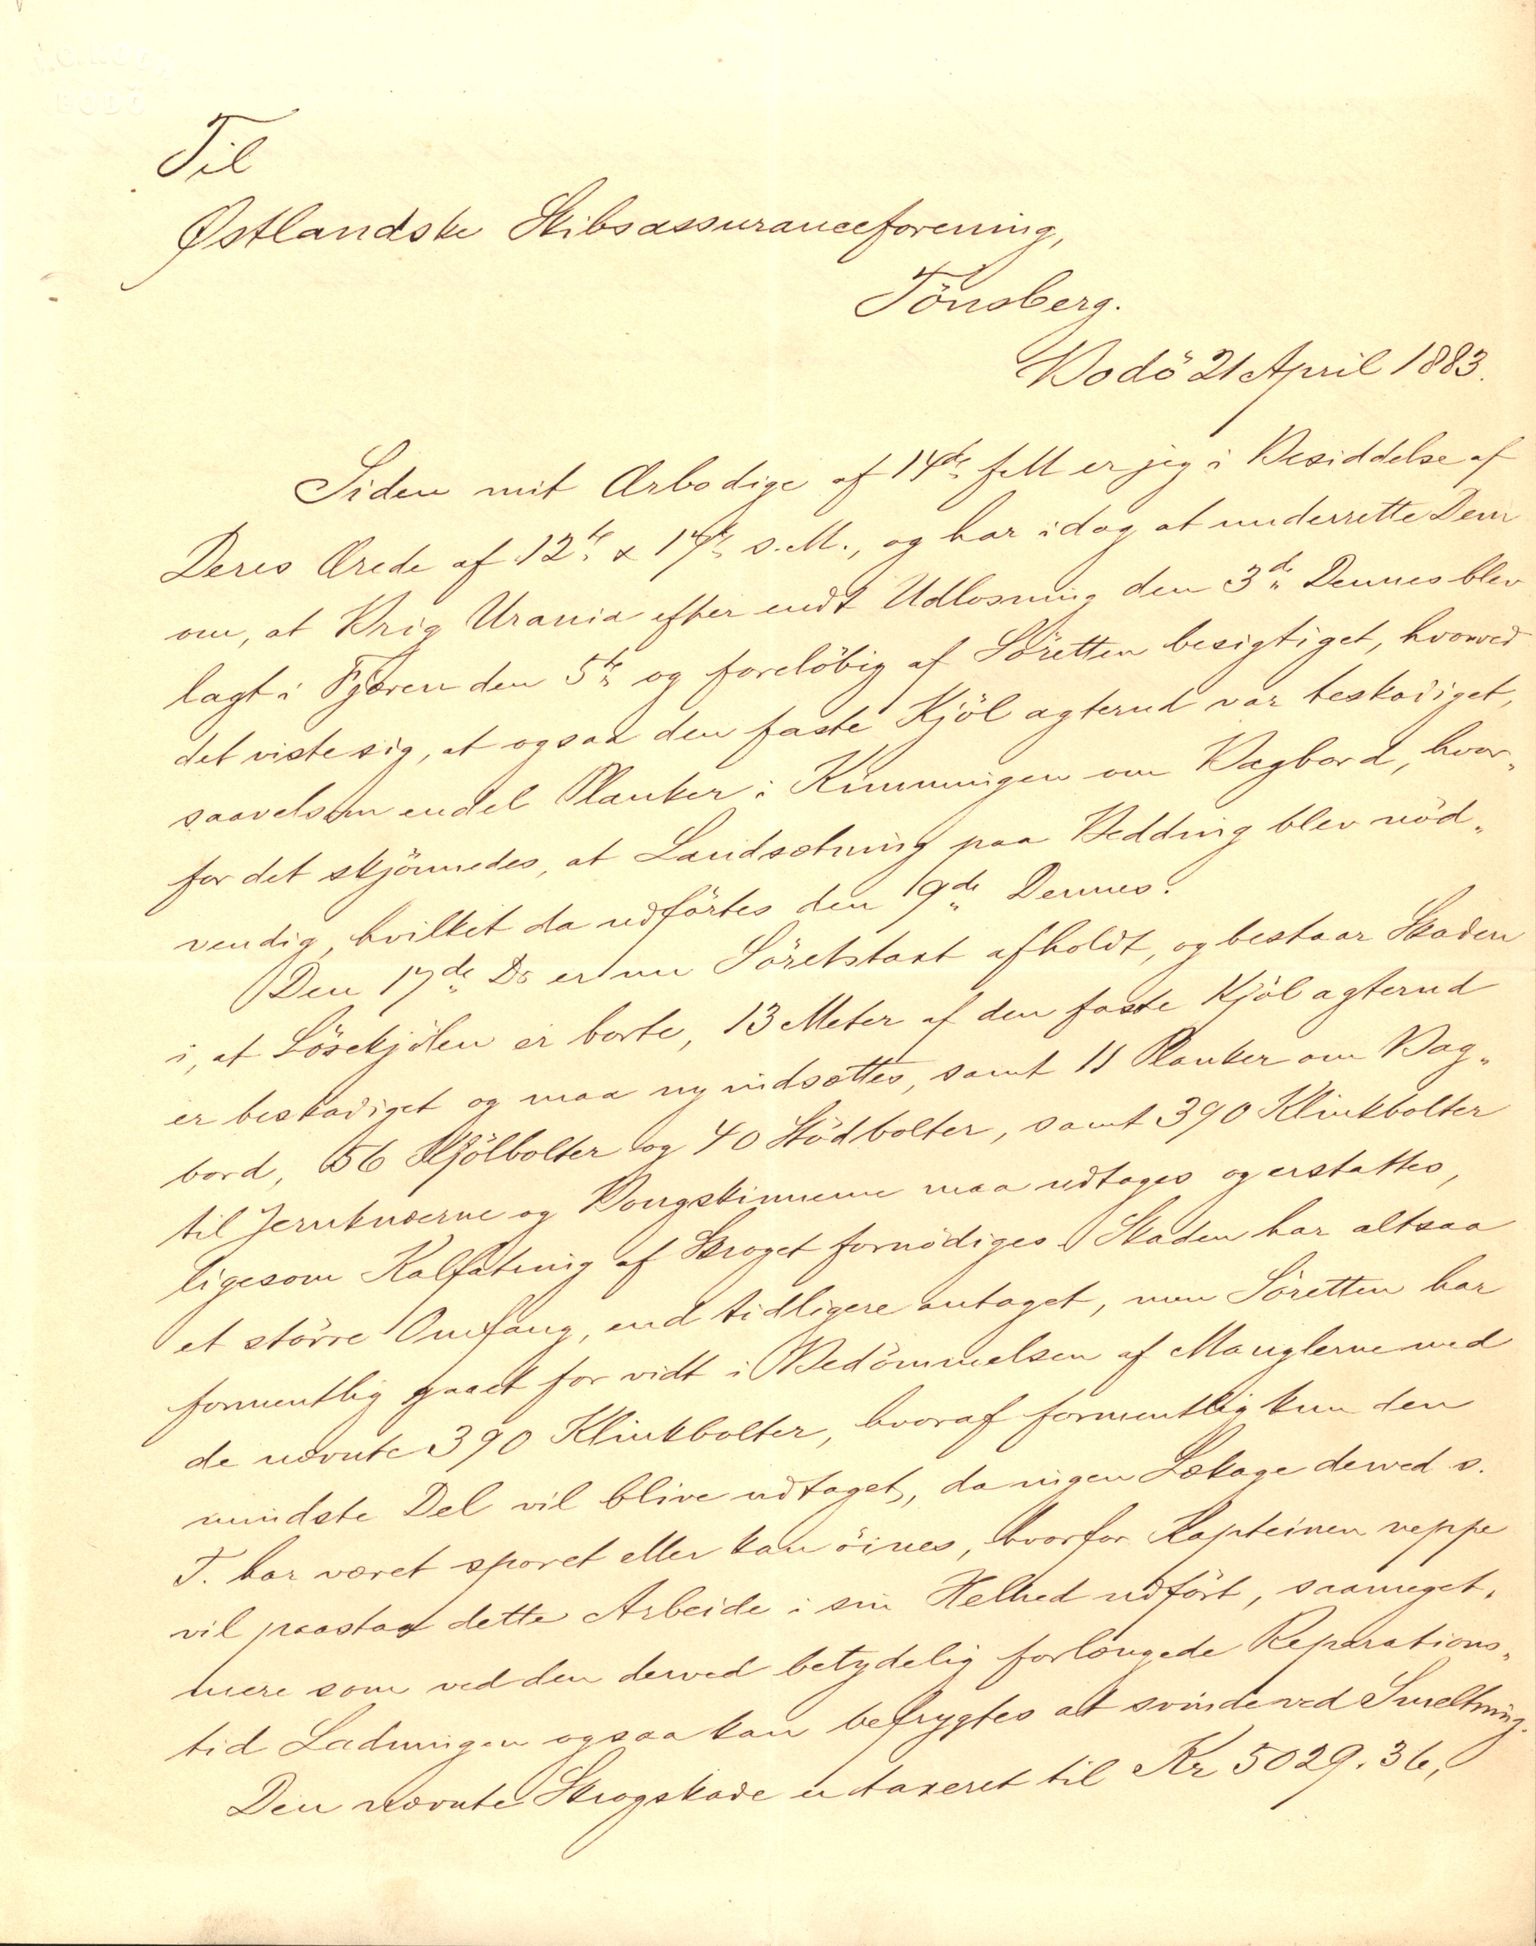 Til
Østlandske Skibsassuranceforening,
Tönsberg.
Bodö 21 April 1883.
Siden mit Ærbødige af 14de er jeg i Besiddelse af
Deres Ærede af 12te & 17de s.M., og har idag at underrette Dem
om, at Brig Urania efter endt Udlosning den 3de Dennes blev
lagt i Fjæren den 5te og foreløbig af Söretten besigtiget, hvorved
det viste sig, at ogsaa den faste Kjöl agterud var beskadiget,
saavelsom endel Planker i Kimmingen om Bagbord, hvor-
for det skjönnedes, at Landsætning paa Bedding blev nöd-
vendig, hvilket da udförtes den 9de Dennes.
Den 17de Do er nu Söretstaxt afholdt, og bestaar Skaden
i, at Lösekjölen er borte, 13 Meter af den faste Kjöl agterud
er beskadiget og maa ny indsættes, samt 11 Planker om Bag-
bord, 56 Kjölbolter og 40 Stödbolter, samt 390 Klinkbolter
til Jernknæerne og maa udtages og erstattes,
ligesom Kalfatring af Skroget fornødiges. Skaden har altsaa
et större Omfang, end tidligere antaget, men Söretten har
formentlig gaaet for vidt i Bedömmelsen af Manglerne ved
de nævnte 390 Klinkbolter, hvoraf formentlig kun den
mindste Del vil blive udtaget, da ingen Lækage derved s.
T. har været sporet eller kan öines, hvorfor Kapteinen neppe
vil paastaa dette Arbeide i sin Helhed udfört, saameget-
mere som ved den derved betydelig forlængede Reparations-
tid Ladningen ogsaa kan befrygtes at svinde ved Smeltning.
Den nævnte Skrogskade er taxeret til Kr 5029.36,